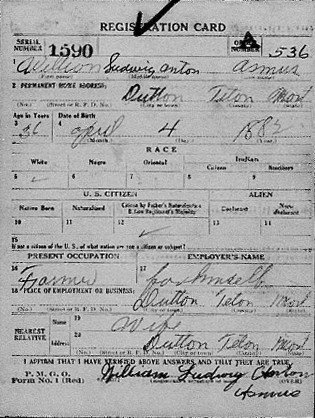 REGISTRATION CARD
SERIAL NUMBER 1590 ORDER NUMBER 536
William Ludwig Anton Asmus
(First name) (Middle name) (Last name)
2 PERMANENT HOME ADDRESS:
Dutton Teton Mont
(No.) (Street or R. F. D. No.) (City or town) (County) (State)
Age in Years Date of Birth
3 36 4 April 4 1882
(Month.) (Day.) (Year.)
RACE
White Negro Oriental Indian
Citizen Noncitizen
5 ✓ 6 7 8 9
U. S. CITIZEN ALIEN
Native Born Naturalized Citizen by Father's Naturalization Before Registrant's Majority Declarant Non-declarant
10 11 12 ✓ 13 14
15
If not a citizen of the U. S., of what nation are you a citizen or subject?
PRESENT OCCUPATION EMPLOYER'S NAME
16 Farmer 17 for himself
18 PLACE OF EMPLOYMENT OR BUSINESS:
Dutton Teton Mont
(No.) (Street or R. F. D. No.) (City or town) (County) (State)
NEAREST RELATIVE Name 19 Wife
Address 20 Dutton Teton Mont
(No.) (Street or R. F. D. No.) (City or town) (County) (State)
I AFFIRM THAT I HAVE VERIFIED ABOVE ANSWERS AND THAT THEY ARE TRUE
P. M. G. O.
Form No. 1 (Red) William Ludwig Anton (OVER)
Asmus